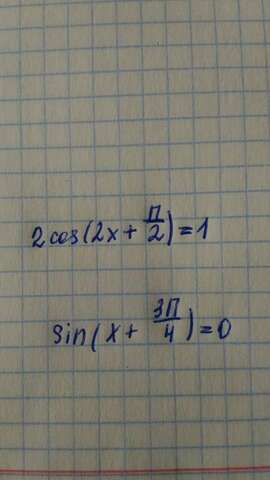 2cos(2x + П/2) = 1
sin(x + 3П/4) = 0